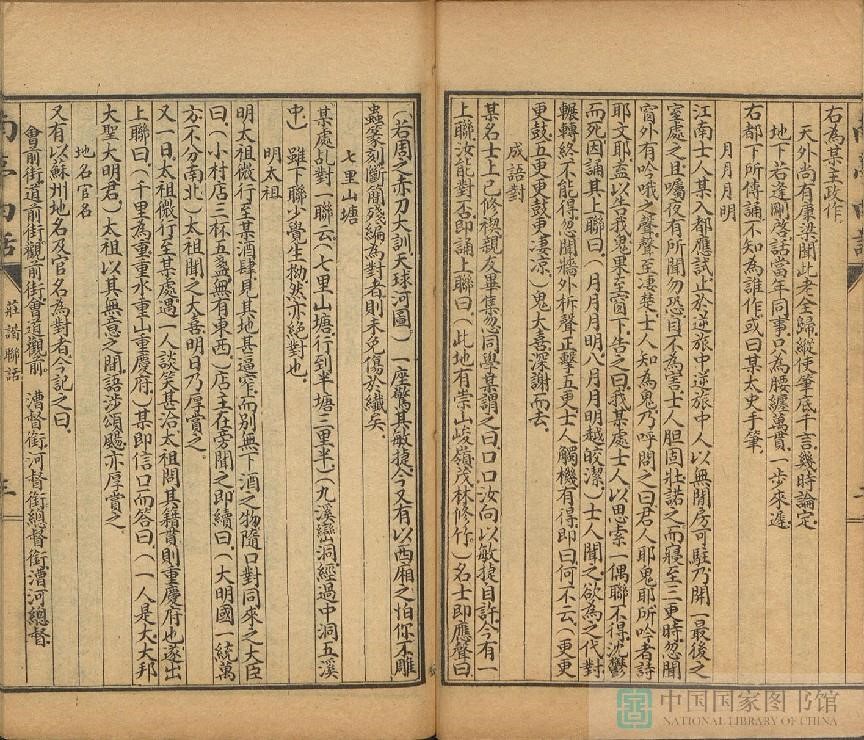 右為某主政作
天外尚有康梁聞此老全歸縱使筆底千言幾時論定
地下若逢剛啓話當年同事只為腰纏萬貫一步來遲
右都下所傳誦不知為誰作或曰某太史手筆
月月月明
江南士人某入都應試止於逆旅中逆旅中人以無閒房可駐乃開一最後之
室處之且囑夜有所聞勿恐自不為害士人胆固壯諾之而寢至三更時忽聞
窗外有吟哦之聲聲至凄楚士人知為鬼乃呼問之曰君人耶鬼耶所吟者詩
耶文耶盍以告我鬼果至窗下告之曰我某處士人以思索一偶聯不得沈鬱
而死因誦其上聯曰（月月月明八月月明越皎潔）士人聞之欲為之代對
輾轉終不能得忽聞牆外柝聲正擊五更士人觸機有得即曰何不云（更更
更鼓五更更鼓更凄凉）鬼大喜深謝而去
成語對
某名士上巳修禊親友畢集忽同學某謂之曰口口汝向以敏捷自許今有一
上聯汝能對否即誦上聯曰（此地有崇山峻嶺茂林修竹）名士即應聲曰
（若周之赤刀大訓天球河圖）一座驚其敏捷今又有以西廂之怕你不雕
蟲篆刻斷簡殘編為對者則未免傷於纖矣
七里山塘
某處乩對一聯云（七里山塘行到半塘三里半）（九溪巒洞經過中洞五溪
中）雖下聯少覺生拗然亦絕對也
明太祖
明太祖微行至某酒肆見其地甚逼窄而別無下酒之物隨口對同來之大臣
曰（小村店三杯五盞無有東西）店主在旁聞之即續曰（大明國一統萬
方不分南北）太祖聞之大喜明日乃厚賞之
又一日太祖微行至某處遇一人談笑甚洽太祖問其籍貫則重慶府也遂出
上聯曰（千里為重重水重山重慶府）某即信口而答曰（一人是大大邦
大聖大明君）太祖以其無意之間語涉頌颺亦厚賞之
地名官名
又有以蘇州地名及官名為對者今記之曰
會前街道前街觀前街會道觀前　漕督銜河督銜總督銜漕河總督
莊諧聯話
中国国家图书馆
NATIONAL LIBRARY OF CHINA